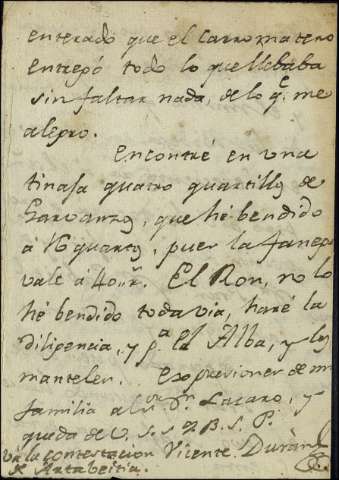 enterado que el Carromatero
entregó todo lo que llebaba
sin faltar nada, de lo q.e me
alegro.
Encontré en una
tinaja quatro quartillos de
Garvanzos, que hé bendido
á 16 quartos, pues la fanega
vale á 40 rr.s El Ron, no lo
hé bendido todavia, haré la
diligencia, y p.a el Alba, y los
manteles. Expresiones de mi
familia al Sr. Dn. Lazaro, y
queda de V. S. S. Q. B. S. P.
Va la contestacion Vicente Durán
de Artabeitia.